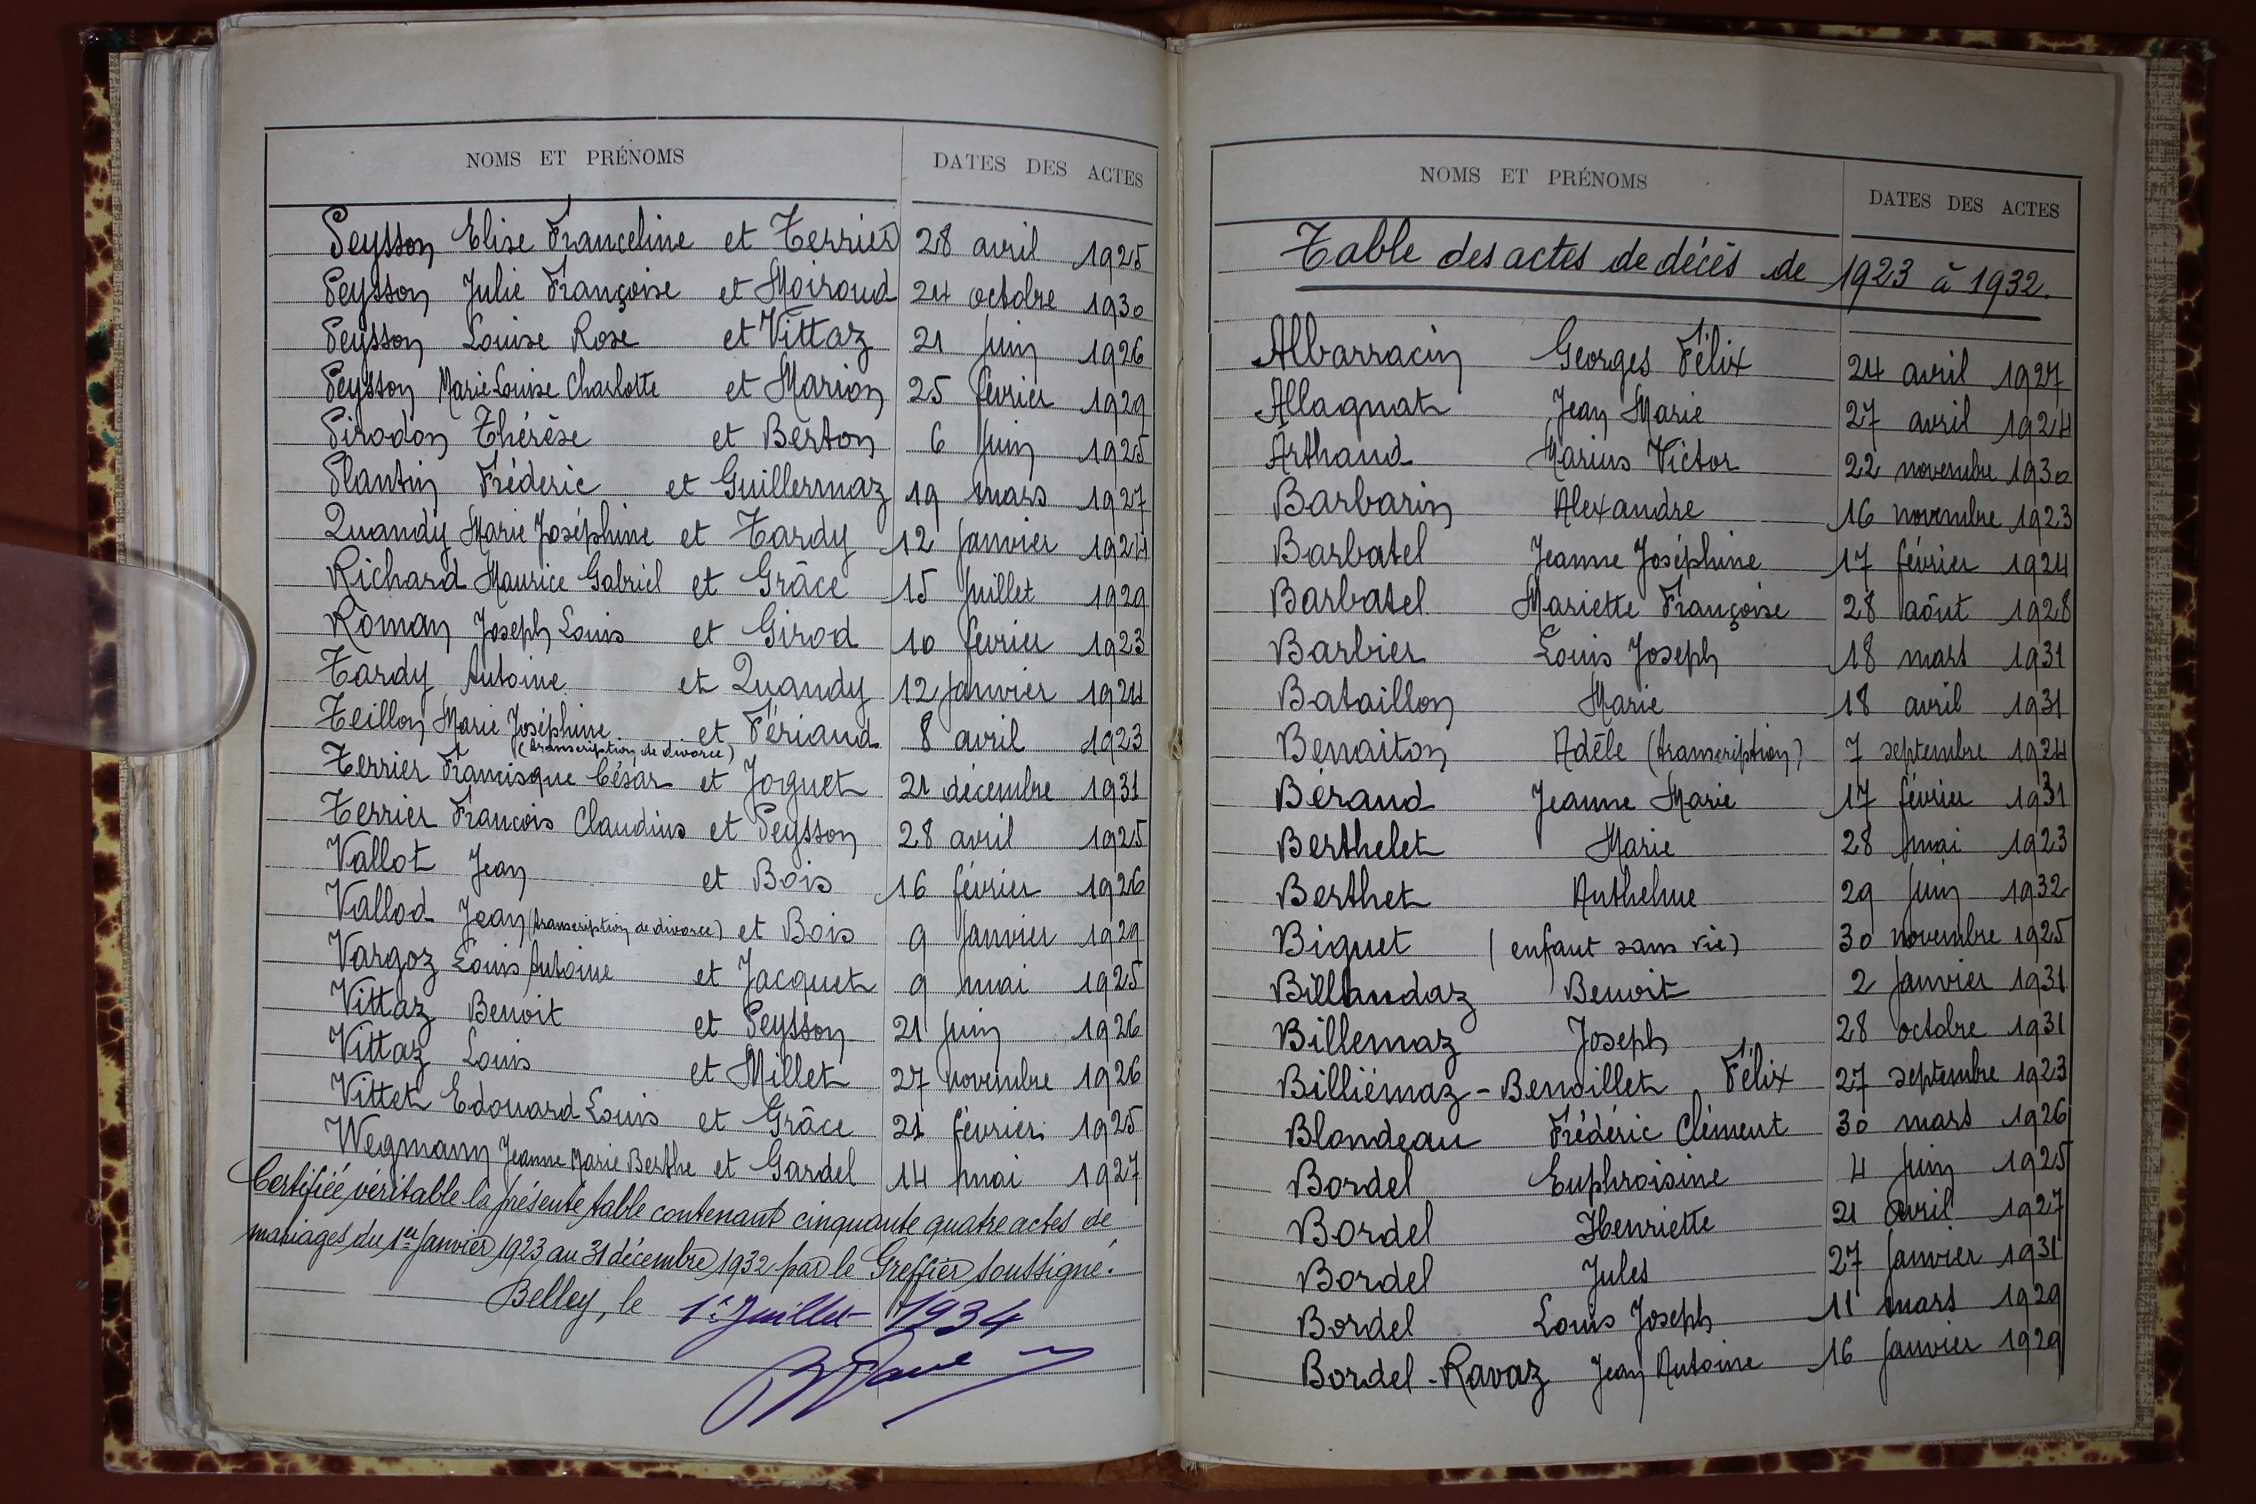 NOMS ET PRÉNOMS DATES DES ACTES
Peysson Elise Franceline et Terrier 28 avril 1925
Peysson Julie Françoise et Moiroud 24 octobre 1930
Peysson Louise Rose et Vittaz 21 juin 1926
Peysson Marie Louise Charlotte et Marion 25 février 1929
Pirodon Thérèse et Berton 6 juin 1925
Plantin Fréderic et Guillermaz 19 mars 1927
Quandy Marie Joséphine et Tardy 12 janvier 1924
Richard Maurice Gabriel et Grâce 15 juillet 1929
Roman Joseph Louis et Girod 10 février 1923
Tardy Antoine et Quandy 12 janvier 1924
Teillon Marie Joséphine et Fériaud 8 avril 1923
(transcription de divorce)
Terrier Francisque César et Joguet 21 décembre 1931
Terrier François Claudius et Peysson 28 avril 1925
Vallot Jean et Bois 16 février 1926
Vallod Jean (transcription de divorce) et Bois 9 janvier 1929
Vargoz Louis Antoine et Jacquet 9 mai 1925
Vittaz Benoit et Peysson 21 juin 1926
Vittaz Louis et Millet 27 novembre 1926
Vittet Edouard Louis et Grâce 21 février 1925
Wegmann Jeanne Marie Berthe et Gardel 14 mai 1927
Certifiée véritable la présente table contenant cinquante quatre actes de
mariages du 1er janvier 1923 au 31 décembre 1932 par le Greffier soussigné.
Belley, le 1er Juillet 1934
NOMS ET PRÉNOMS DATES DES ACTES
Table des actes de décès de 1923 à 1932.
Albarracin Georges Félix 24 avril 1927
Allagnat Jean Marie 27 avril 1924
Arthaud Marius Victor 22 novembre 1930
Barbarin Alexandre 16 novembre 1923
Barbatel Jeanne Joséphine 17 février 1924
Barbatel Mariette Françoise 28 aôut 1928
Barbier Louis Joseph 18 mars 1931
Bataillon Marie 18 avril 1931
Benaiton Adèle (transcription) 7 septembre 1924
Béraud Jeanne Marie 17 février 1931
Berthelet Marie 28 mai 1923
Berthet Anthelme 29 juin 1932
Biguet (enfant sans vie) 30 novembre 1925
Billandaz Benoit 2 janvier 1931
Billemaz Joseph 28 octobre 1931
Billiémaz-Benoillet Félix 27 septembre 1923
Blondeau Frédéric Clément 30 mars 1926
Bordel Euphroisine 4 juin 1925
Bordel Henriette 21 avril 1927
Bordel Jules 27 janvier 1931
Bordel Louis Joseph 11 mars 1929
Bordel-Ravaz Jean Antoine 16 janvier 1929